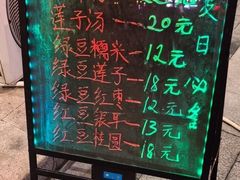 莲子汤 20元
绿豆糯米 12元
绿豆莲子 18元
绿豆红枣 12元
红豆银耳 13元
红豆桂圆 18元
夏日必备